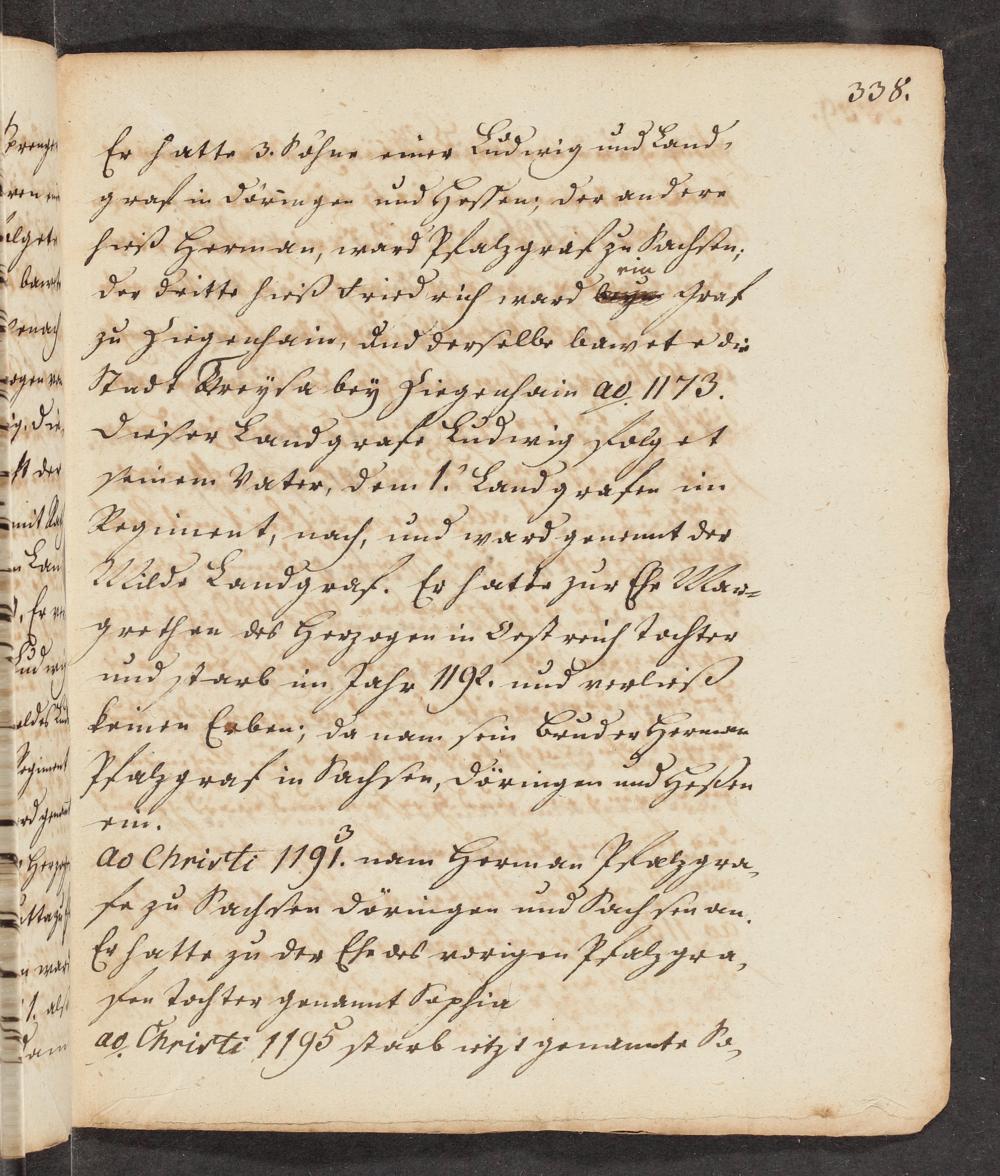 338.
Er hatte 3. Söhne einer Ludwig und Land,
graf in Döringen und Hessen; der andere
hieß Herman, ward Pfalzgraf zu Sachsen;
ein
der dritte hieß Friedrich ward Graf
zu Ziegenhain, und derselbe bawete die
Stadt Treysa bey Ziegenhain ao. 1173.
Dieser Landgrafe Ludwig folget
seinem Vater, dem 1. Landgrafen im
Regiment, nach, und ward genennt der
Milde Landgraf. Er hatte zur Ehe Mar=
grethen des Herzogen in Oestreich Tochter
und starb im Jahr 1192. und verließ
keinen Erben; da nam sein Bruder Herman
Pfalzgraf in Sachsen, Döringen und Hessen
ein.
3
ao Christi 1191. nam Herman Pfalzgra,
fe zu Sachsen Döringen und Sachsen an.
Er hatte zu der Ehe des vorigen Pfalzgra,
fen Tochter genannt Sophia
ao. Christi 1195 starb ietzt genannte So,